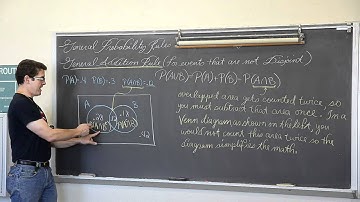 General Probability Rules
General Addition Rule (for events that are not Disjoint)
P(A)=.4 P(B)=.3 P(A∩B)=.12
P(A∪B)=P(A)+P(B)-P(A∩B)
overlapped area gets counted twice, so
you must subtract that area once. In a
Venn diagram as shown on the left, you
would not count this area twice so the
diagram simplifies the math.
A B
.28 .12 .18
.42
ROUT